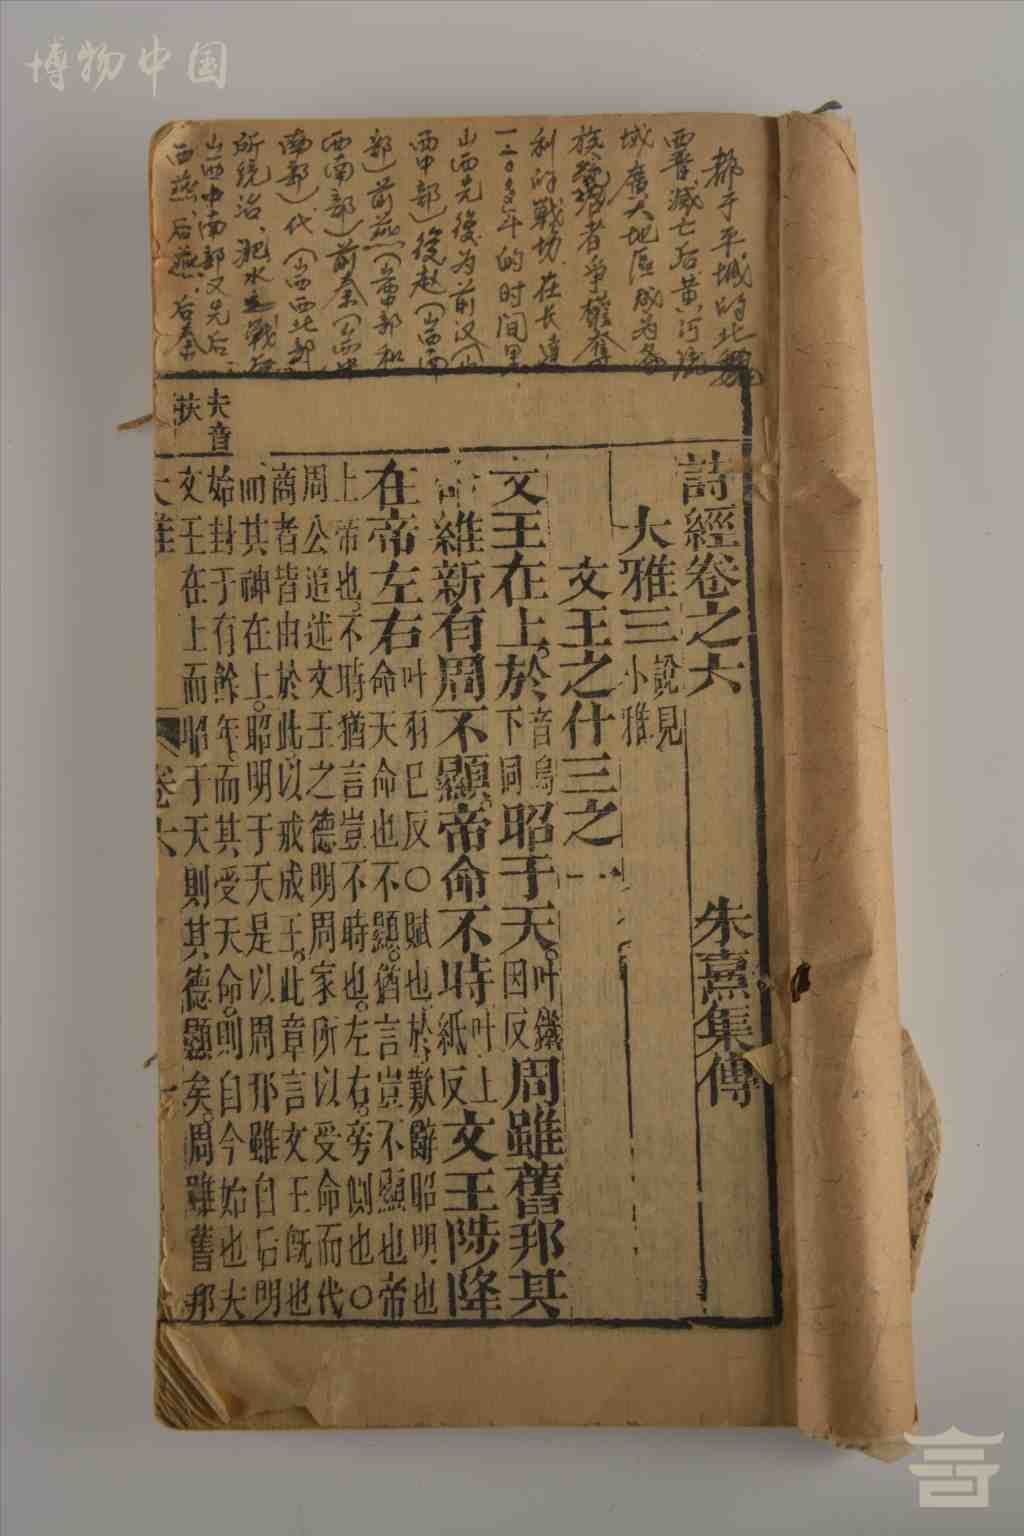 博物中国
都于平城的北魏
西晋滅亡后黄河流
域廣大地區成为各
族統治者爭權奪
利的戰場.在长達
一二0多年的时间里
山西先後为前汉(山
西中部)後赵(山西南
部)前燕(山西中部和
西南部)前秦(山西中
南部)代(山西西北部)
所统治、淝水之戰后
山西中南部又先后
西燕、后燕、后秦
夫音
扶
詩經卷之六
朱熹集傳
大雅三
說見
小雅
文王之什三之一
文王在上。於
音烏
下同
昭于天。
叶鐵
因反
周雖舊邦其
命維新有周不顯。帝命不時
叶上
紙反
文王陟降
在帝左右
叶羽已反○賦也。於、歎辭昭明也
命天命也不顯。猶言豈不顯也帝
上帝也。不時猶言豈不時也。左右。旁側也○
周公追述文王之德明周家所以受命而代
商者皆由於此。以戒成王。此章言文王既也
而其神在上。昭明于天是以周邦雖自后明
始封于有餘年。而其受天命。則自今始也大
文王在上而昭于天則其德顯矣。周雖舊邦
大雅
卷六